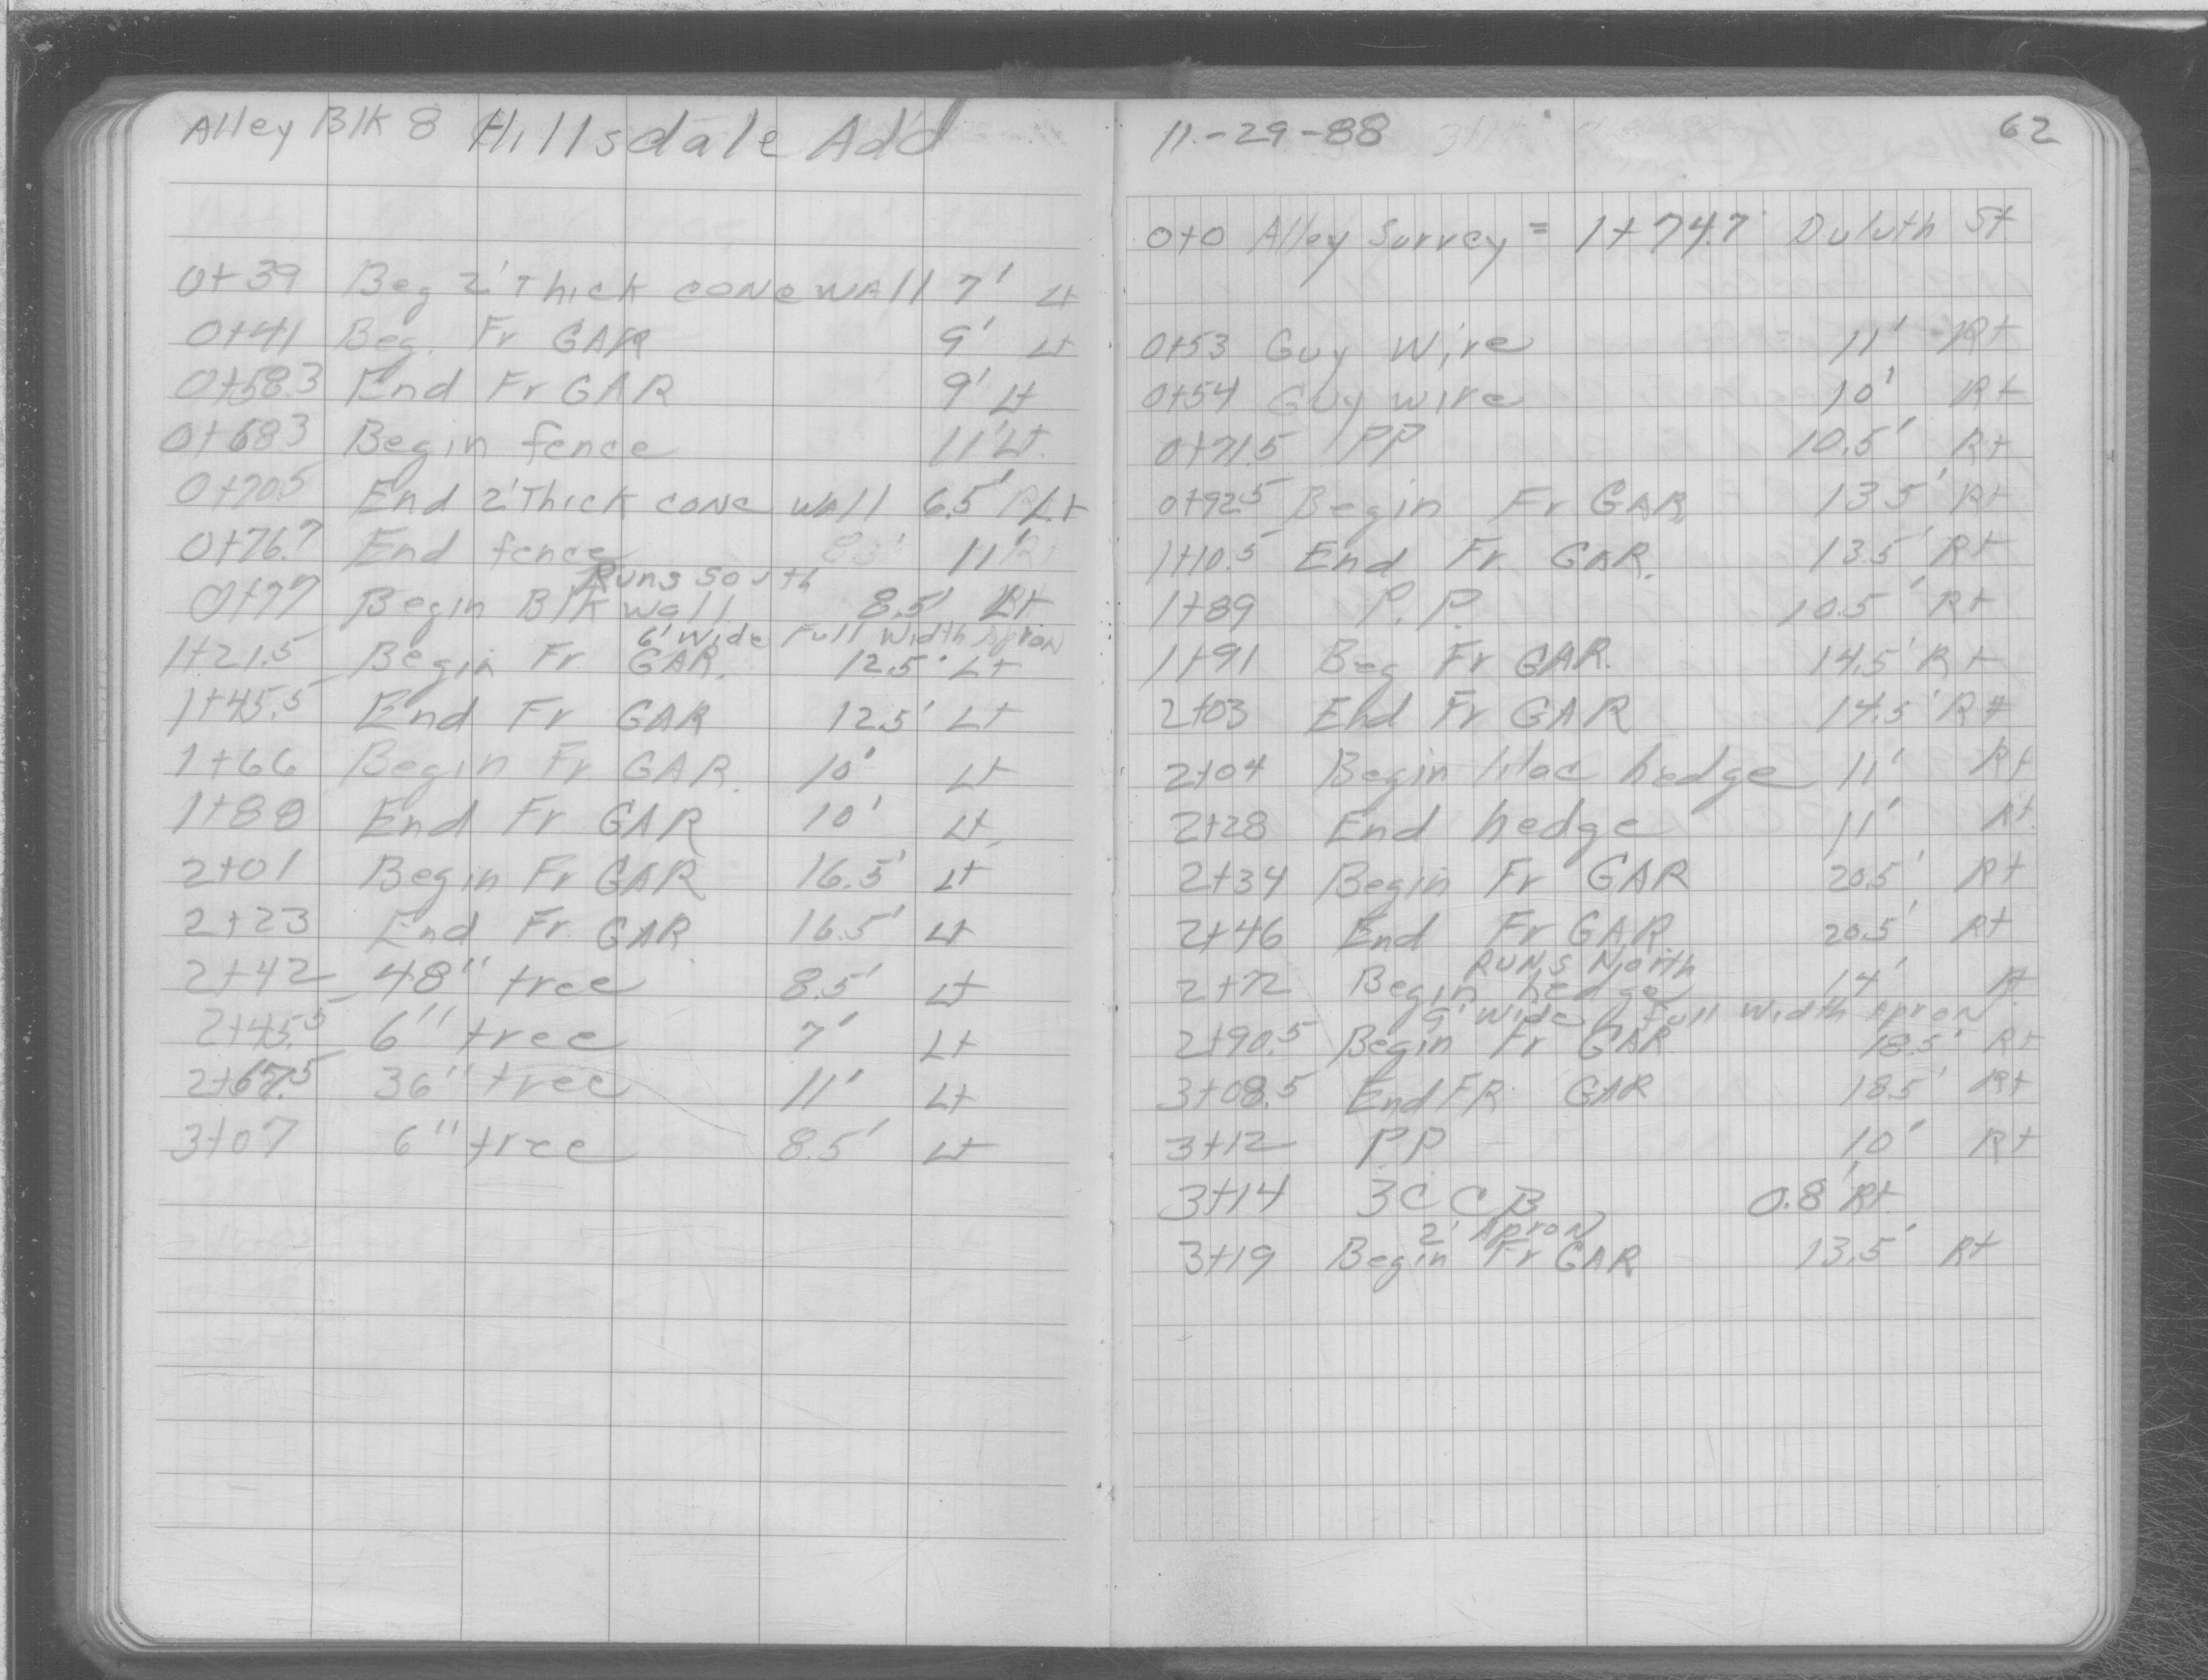 Alley Blk 8 Hillsdale Add
0+39 Beg 2' Thick conc wall 7' Lt
0+41 Beg. Fr GAR 9' Lt
0+58.3 End Fr GAR 9' Lt
0+68.3 Begin fence 11' Lt.
0+70.5 End 2' Thick conc wall 6.5' Lt
0+76.7 End fence 11'
Runs South
0+77 Begin Blk wall 8.5' Lt
6' Wide Full Width Apron
1+21.5 Begin Fr. GAR. 12.5' Lt
1+45.5 End Fr GAR 12.5' Lt
1+66 Begin Fr. GAR. 10' Lt
1+88 End Fr GAR 10' Lt.
2+01 Begin Fr GAR 16.5' Lt
2+23 End Fr. GAR 16.5' Lt
2+42 48" tree 8.5' Lt
2+45.5 6" tree 7' Lt
2+67.5 36" tree 11' Lt
3+07 6" tree 8.5' Lt
11-29-88 62
0+0 Alley Survey = 1+74.7 Duluth St.
0+53 Guy Wire 11' Rt
0+54 Guy wire 10' Rt
0+71.5 PP 10.5' Rt
0+92.5 Begin Fr GAR 13.5' Rt
1+10.5 End Fr. GAR. 13.5' Rt
1+89 P.P. 10.5' Rt
1+91 Beg Fr GAR. 14.5' Rt
2+03 End Fr GAR 14.5' Rt
2+04 Begin lilac hedge 11' Rt
2+28 End hedge 11' Rt.
2+34 Begin Fr GAR 20.5' Rt
2+46 End Fr GAR 20.5' Rt
Runs North
2+72 Begin hedge 14' Rt
9' Wide Full Width Apron
2+90.5 Begin Fr GAR 18.5' Rt
3+08.5 End FR GAR 18.5' Rt
3+12 PP 10' Rt
3+14 3C CB 0.8' Rt.
2' Apron
3+19 Begin Fr GAR 13.5' Rt